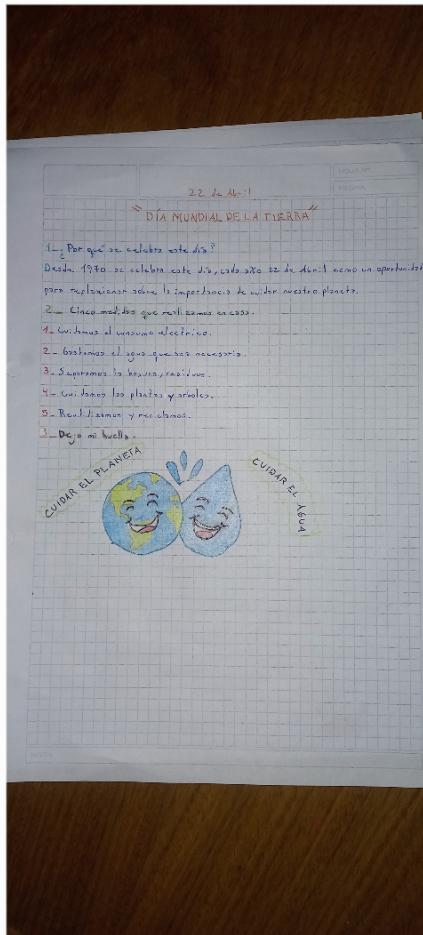 22 de Abril
"DÍA MUNDIAL DE LA TIERRA"
1_ ¿Por qué se celebra este día?
Desde 1970 se celebra este día, cada año 22 de Abril como un oportunidad
para replexionar sobre la importancia de cuidar nuestro planeta.
2_ Cinco medidas que realizamos en casa.
1_ Cuidamos el consumo electrico.
2_ Gastamos el agua que sea necesaria.
3_ Separamos la basura, residuos.
4_ Cuidamos las plantas y arboles.
5_ Reutilizamos y reciclamos.
3_ Dejo mi huella.
CUIDAR EL PLANETA
CUIDAR EL AGUA